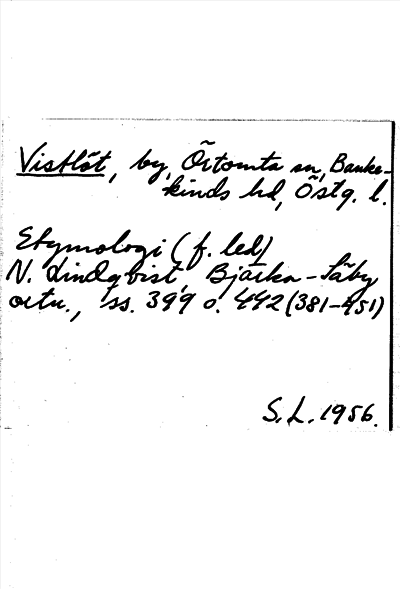 Vistlöt, by, Örtomta sn, Banke-
kinds hd, Östg. l.
Etymologi (f. led)
N. Lindqvist, Bjärka-Säby
ortn., ss. 399 o. 442 (381-451)
S.L. 1956.